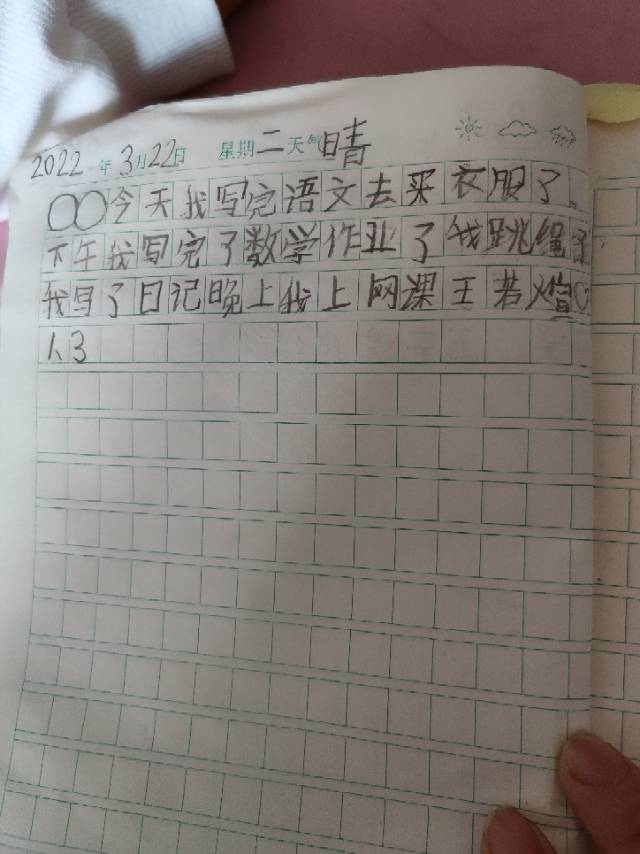 2022年3月22日 星期二天气晴
○○今天我写完语文去采衣服了。
下午我写完了数学作业了我跳绳了
我写了日记晚上我上网课王若
人3